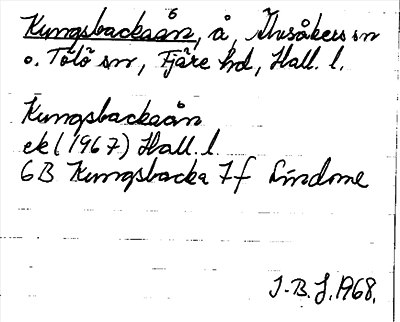 Kungsbackaån, å, Älvsåkers sn
o. Tölö sn, Fjäre hd, Hall. l.
Kungsbackaån
ek (1967) Hall. l.
6B Kungsbacka 7f Lindome
J.B.J. 1968.